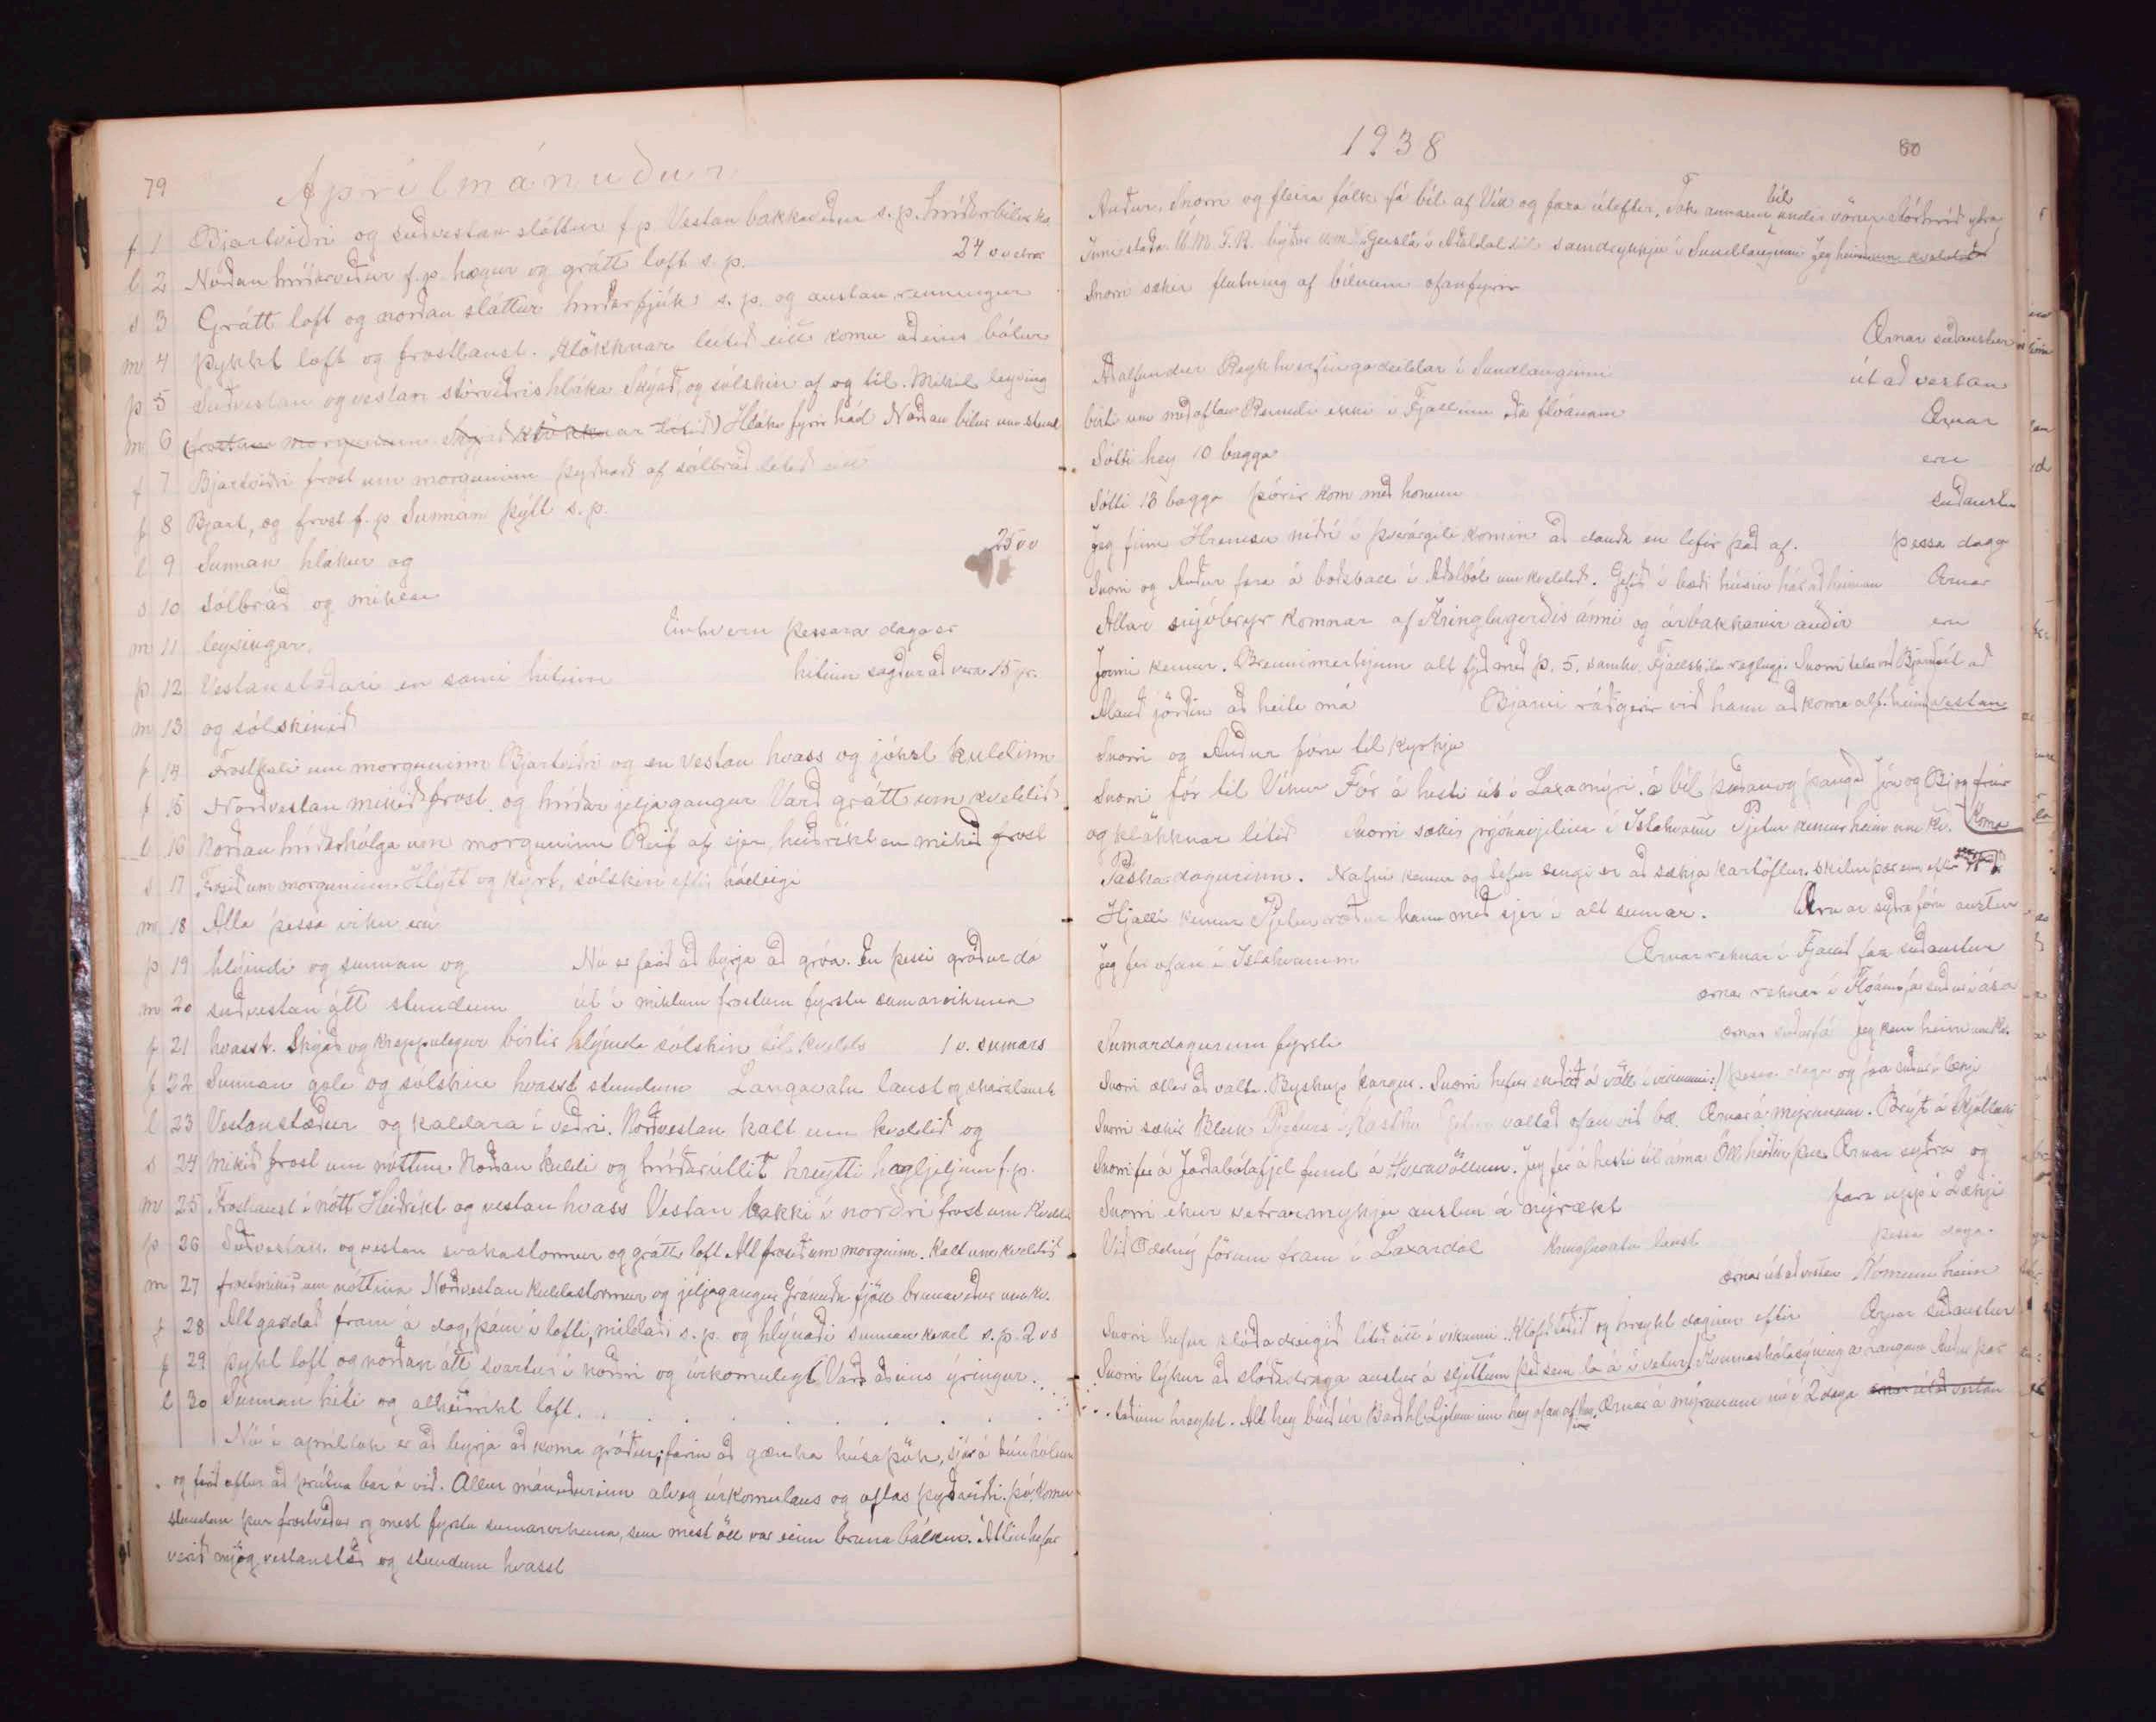 79
Aprílmánuður
f 1 Bjartviðri og suðvestan sláttur f.p. Vestan bakkaveður s.p. Hríðarbilur kv.
l 2 Norðan hríðarveður f.p. hægur og grátt loft s.p. 24 v vetrar
s 3 Grátt loft og norðan sláttur hríðarfjúk s.p. og austan renningur
m 4 Þykkt loft og frostlaust. Klökknar lítið eitt komu aðeins bólur
þ 5 Suðvestan og vestan stórviðrishláka Skýað og sólskin af og til. Mikil leysing
m 6 Hláka fyrir hád Norðan bilur um stund
f 7 Bjartviðri frost um morguninn þyðnaði af sólbráð lítið eitt
f 8 Bjart, og frost f.p Sunnan þýtt s.p.
l 9 Sunnan hlákur og 25 v v
s 10 sólbráð og miklar
m 11 leysingar. Einhvern þessara daga er
þ 12 Vestanstæðari en sami hitinn hitinn sagður að vera 15 gr.
m 13 og sólskinið
f 14 Frostkali um morguninn Bjartviðri og en vestan hvass og jókst kuldinn
f 15 Norðvestan mikið frost og hríðarjeljagangur Varð grátt um kveldið
l 16 Norðan hríðarhólga um morguninn Reif af sjer, heiðríkt en mikið frost
s 17 Frosið um morguninn Hlýtt og kyrt, sólskin eftir hádeigi
m 18 Alla þessa viku eru
þ 19 hlýindi og sunnan og Nú er farið að byrja að gróa. En þessi gróður dó
m 20 suðvestan átt stundum út í miklum frostum fyrstu sumarvikuna
f 21 hvasst. Skýað og kreppulegur birtir hlýinda sólskin til kvelds 1 v. sumars
f 22 Sunnan gola og sólskin hvasst stundum Langavatn laust og skáralaust
l 23 Vestanstæður og kaldara í veðri. Norðvestan kalt um kveldið og
s 24 Mikið frost um nóttina. Norðan kuldi og hríðarútlit hreytti hagljeljum f.p.
m 25 Frostlaust í nótt Heiðríkt og vestan hvass Vestan bakki í norðri frost um kveld
þ 26 Suðvestan og vestan svakastormur og grátt loft Alt frosið um morguninn. Kalt um kveldið
m 27 frostmikið um nóttina Norðvestan kuldastormur og jeljagangur Gránuðu fjöll brunaveður um kv.
f 28 Alt gaddað fram á dag, þám í lofti, mildaði s.p. og hlýnaði sunnan kveld s.p. 2 v s
f 29 Þykt loft og norðan átt svartur í norðri og úrkomulegt Varð aðeins ýringur.
l 30 Sunnan hiti og alheiðríkt loft.
Nú í apríllok er að byrja að koma gróður, farin að grænka húsaþök, sjer á túnhólum
og farið aftur að þrútna ber á við. Allur mánuðurinn alveg úrkomulaus og oftas þyðviðri. þó komu
stundum þur frostveður og mest fyrstu sumarvikuna, sem mest öll var einn brunabálkur. Áttin hefur
verið mjög vestanstæð og stundum hvasst
1938
80
Auður, Snorri og fleira fólk fá bíl af Vík og fara úteftir. Tók annan bíl undir vörur stórhríð yfra
Snorri sækir flutning af bílnum ofanfyrir
Ærnar suðaustur
Aðalfundur Reykhverfingadeildar í Sundlauginni út að vestan
birti um miðaftan Rendi ekki í Fjallinu eða flóanum Ærnar
Sótti hey 10 bagga eru
Sótti 13 bagga þórir kom með honum suðaustur
Jeg finn Hremsu niðri í þverárgili komin að dauða en lifir það af. þessa daga
Snorri og Auður fara á boðsball í Aðalból um kveldið. Gefið í bæði húsin há að heiman Ærnar
Allar snjóbryr komnar af Kringlugerðis ánni og árbakkarnir auðir eru
Jonni kemur. Brennimerkjum alt fjeð með þ. 5. samkv. Fjallskila reglugj. Snorri talar við Bjarna út að
Mauð jörðin að heita má Bjarni ráðgerir við hann að koma alf. heim vestan
Snorri og Auður fóru til kyrkju
Snorri fór til Víkur Fór á hesti út í Laxamýri, á bíl þaðan og þangað Jón og Bj og frúr
og klökknar lítið Snorri sækir prjónavjelina í Íslahvamm Pjetur kemur heim um kv. Koma
Páskadagurinn. Nafni kemur og tefur lengi er að sækja kartöflur, skilur þær eina eftir
Hjalli kemur Pjetur ræður hann með sjer í alt sumar. Ærnar syðra fóru austur
Jeg fer ofan í Íslahvamm Ærnar reknar í Fjallið fara suðaustur
ærnar reknar í Flóann fóru suður í ása
ærnar suðurfrá Jeg kem heim um kv.
Sumardagurinn fyrsti
Snorri ætlar að valta. Byskups kargur. Snorri hefur endað á völt í vikunni:/ þessa daga og fara suður í lækji
Snorri sækir Bleik Pjeturs vallað ofan við bæ. Ærnar á mýrunum.
Snorri fer á Jarðabótafjel. fund á Hveravöllum. Jeg fer á hesti til ánna Öll heiðin þur Ærnar syðra og
Snorri ekur vetrarmykju austur á nýrækt fara upp í Lækji
Við Oddný förum fram í Laxárdal Kringluvatn laust þessa daga.
ærnar út að vestan Kómum heim
Snorri hefur slóðadregið lítið eitt í vikunni. Kláf taðið og hreykt daginn eftir Ærnar suðaustur
Snorri lýkur að slóðadraga austur á sljettum það sem lá á í vetur / Kvennaskólasýning á Laugum Auður þar
taðinu hreykt. Alt hey búið úr Barðhl. Ljetum inn hey ofan af Ærnar á mýrunum nú í 2 daga